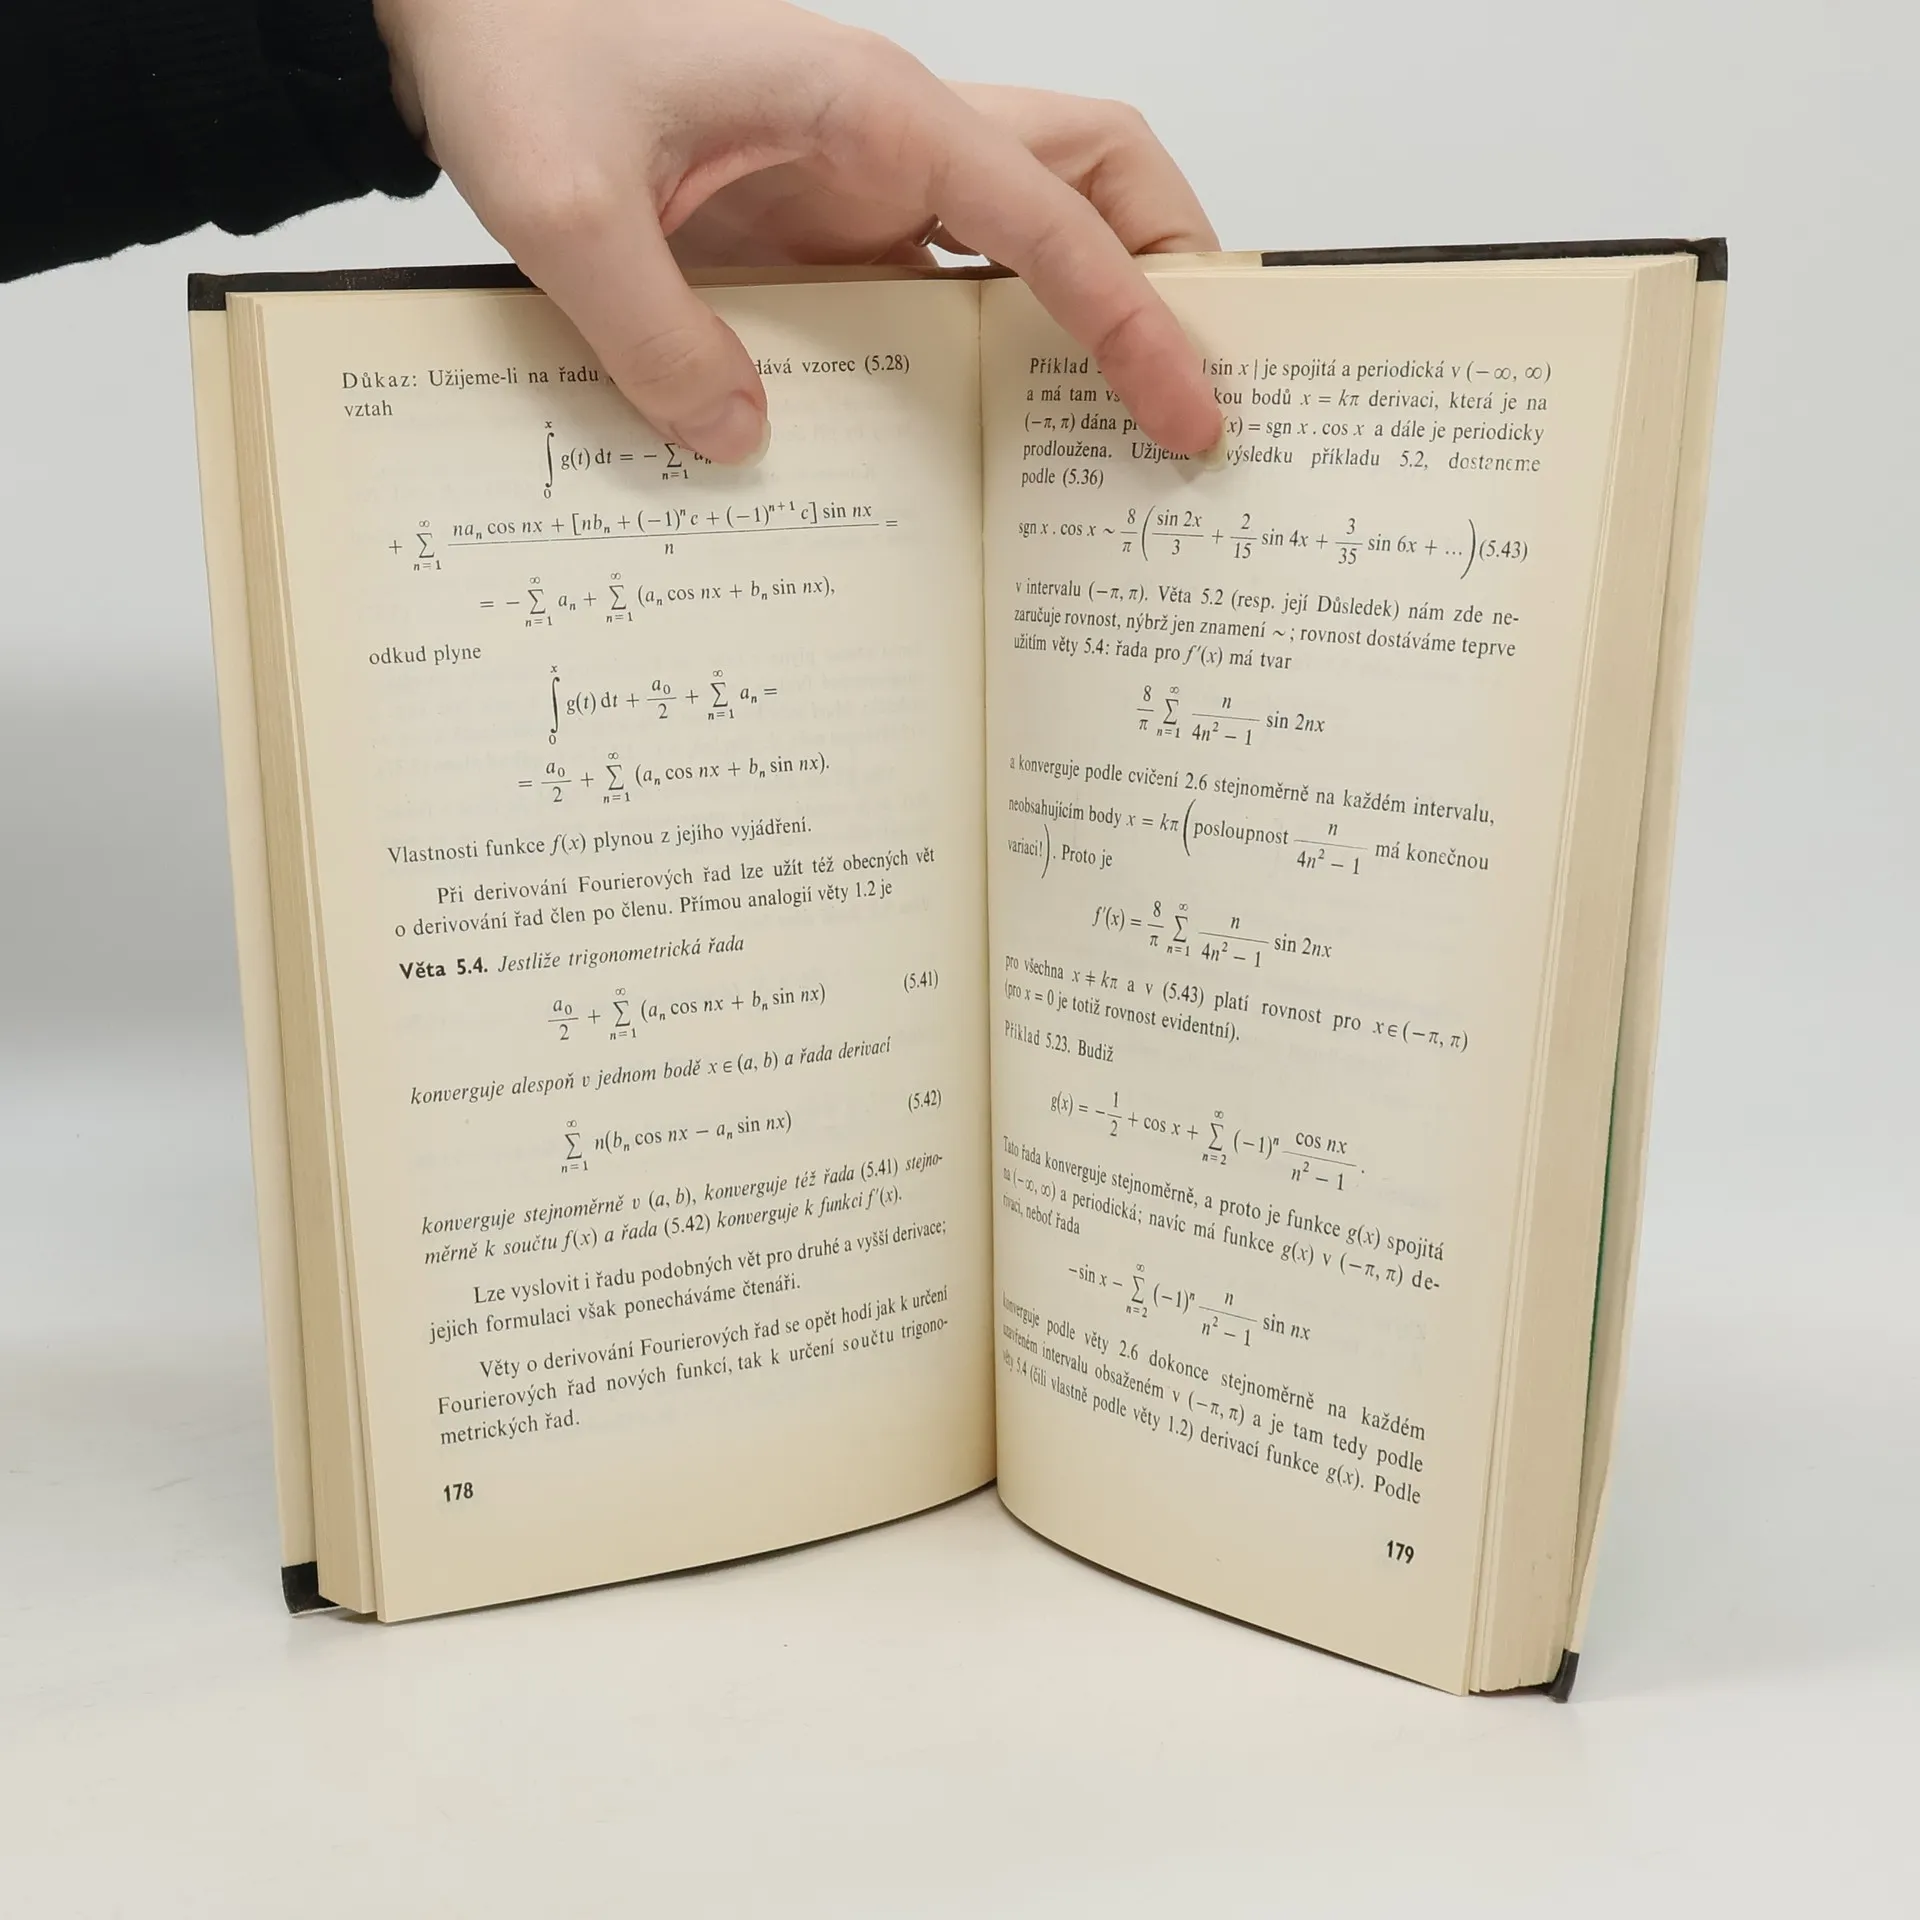 Důkaz: Užijeme-li na řadu dává vzorec (5.28)
vztah
∫₀ˣ g(t) dt = − ∑ₙ₌₁
+ ∑ₙ₌₁^∞ (naₙ cos nx + [nbₙ + (−1)ⁿ c + (−1)ⁿ⁺¹ c] sin nx)/n =
= − ∑ₙ₌₁^∞ aₙ + ∑ₙ₌₁^∞ (aₙ cos nx + bₙ sin nx),
odkud plyne
∫₀ˣ g(t) dt + a₀/2 + ∑ₙ₌₁^∞ aₙ =
= a₀/2 + ∑ₙ₌₁^∞ (aₙ cos nx + bₙ sin nx).
Vlastnosti funkce f(x) plynou z jejího vyjádření.
Při derivování Fourierových řad lze užít též obecných vět
o derivování řad člen po členu. Přímou analogií věty 1.2 je
Věta 5.4. Jestliže trigonometrická řada
a₀/2 + ∑ₙ₌₁^∞ (aₙ cos nx + bₙ sin nx) (5.41)
konverguje alespoň v jednom bodě x ∈ (a, b) a řada derivací
∑ₙ₌₁^∞ n(bₙ cos nx − aₙ sin nx) (5.42)
konverguje stejnoměrně v (a, b), konverguje též řada (5.41) stejno-
měrně k součtu f(x) a řada (5.42) konverguje k funkci f′(x).
Lze vyslovit i řadu podobných vět pro druhé a vyšší derivace;
jejich formulaci však ponecháváme čtenáři.
Věty o derivování Fourierových řad se opět hodí jak k určení
Fourierových řad nových funkcí, tak k určení součtu trigono-
metrických řad.
178
Příklad | sin x | je spojitá a periodická v (−∞, ∞)
a má tam bodů x = kπ derivaci, která je na
(−π, π) dána (x) = sgn x . cos x a dále je periodicky
prodloužena. výsledku příkladu 5.2, dostaneme
podle (5.36)
sgn x . cos x ~ 8/π (sin 2x/3 + 2/15 sin 4x + 3/35 sin 6x + ...) (5.43)
v intervalu (−π, π). Věta 5.2 (resp. její Důsledek) nám zde ne-
zaručuje rovnost, nýbrž jen znamení ~; rovnost dostáváme teprve
užitím věty 5.4: řada pro f′(x) má tvar
8/π ∑ₙ₌₁^∞ n/(4n² − 1) sin 2nx
a konverguje podle cvičení 2.6 stejnoměrně na každém intervalu,
neobsahujícím body x = kπ (posloupnost n/(4n² − 1) má konečnou
variaci!). Proto je
f′(x) = 8/π ∑ₙ₌₁^∞ n/(4n² − 1) sin 2nx
pro všechna x ≠ kπ a v (5.43) platí rovnost pro x∈(−π, π)
(pro x = 0 je totiž rovnost evidentní).
Příklad 5.23. Budiž
g(x) = −1/2 + cos x + ∑ₙ₌₂^∞ (−1)ⁿ cos nx/(n² − 1).
Tato řada konverguje stejnoměrně, a proto je funkce g(x) spojitá
na (−∞, ∞) a periodická; navíc má funkce g(x) v (−π, π) de-
rivaci, neboť řada
−sin x − ∑ₙ₌₂^∞ (−1)ⁿ n/(n² − 1) sin nx
konverguje podle věty 2.6 dokonce stejnoměrně na každém
uzavřeném intervalu obsaženém v (−π, π) a je tam tedy podle
věty 5.4 (čili vlastně podle věty 1.2) derivací funkce g(x). Podle
179